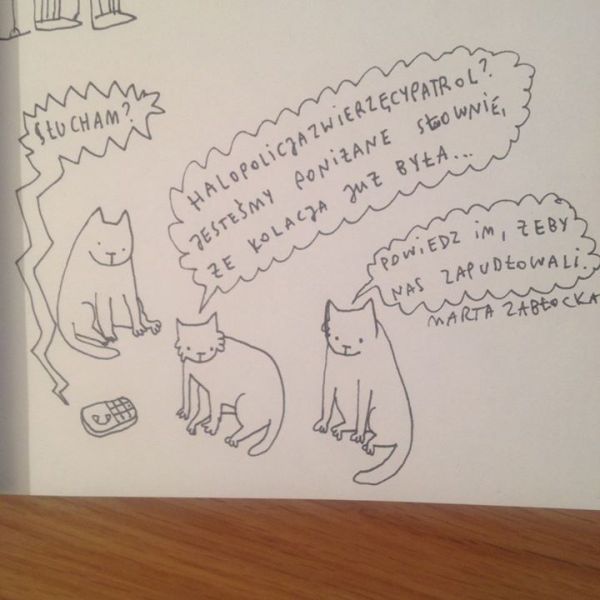 SŁUCHAM?
HALOPOLICJAZWIERZĘCYPATROL?
JESTEŚMY PONIŻANE SŁOWNIE,
ŻE KOLACJA JUŻ BYŁA...
POWIEDZ IM, ŻEBY
NAS ZAPUDŁOWALI.
MARTA ZABŁOCKA